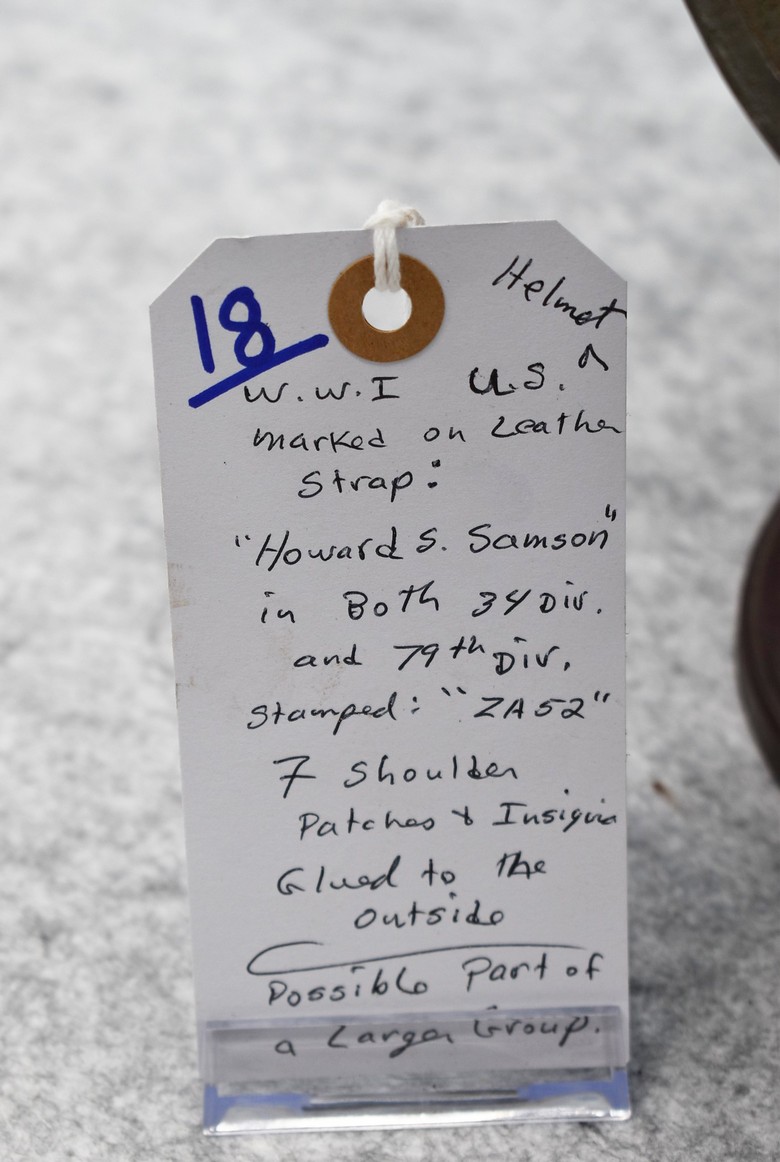 18
Helmet
W.W.I U.S. ^
marked on Leather
Strap:
"Howard S. Samson"
in Both 34 Div.
and 79th Div.
Stamped: "ZA52"
7 Shoulder
Patches & Insignia
Glued to the
outside
Possible Part of
a Larger Group.